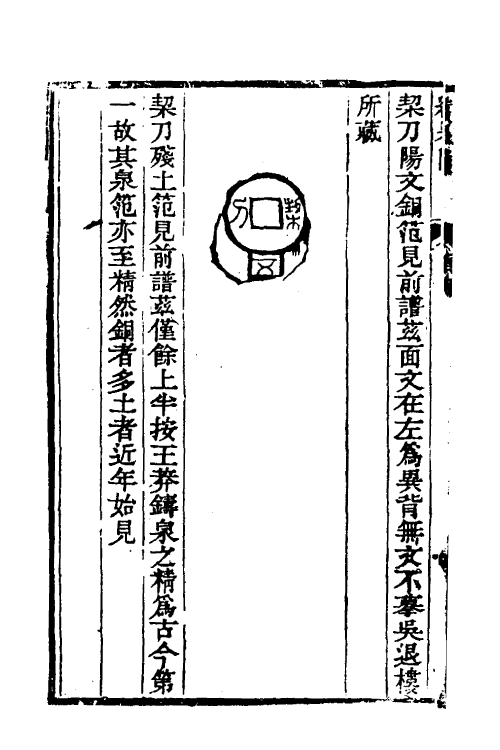 栔刀陽文銅笵見前譜茲面文在左爲異背無文不摹吳退樓
所藏
栔刀
五
栔刀殘土笵見前譜茲僅餘上半按王莽鑄泉之精爲古今第
一故其泉笵亦至精然銅者多土者近年始見